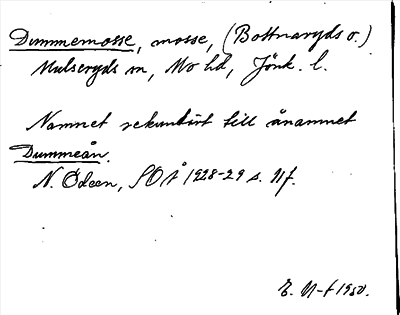 Dummemosse, mosse, (Bottnaryds o.)
Mulseryds sn, Mo hd, Jönk. l.
Namnet sekundärt till ånamnet
Dummeån.
N. Ödeen, SOÅ 1928-29 s. 11f.
E. N-f 1950.